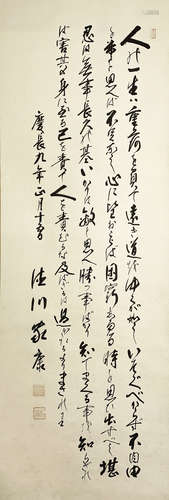 人の一生は重荷を負て遠き道をゆくが如しいそぐべからず不自由
を常と思へば不足なし心に望おこらば困窮したる時を思ひ出すべし堪
忍は無事長久の基いかりは敵と思へ勝事ばかり知て負る事を知らざれ
ば害其身にいたる己を責て人を責むるな及ばざるは過たるよりまされり
慶長九年正月十五日
徳川家康